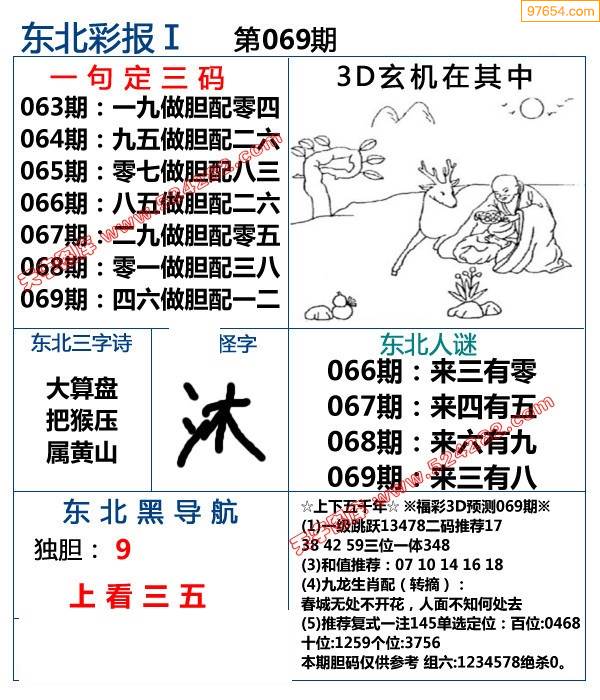 97654.com
东北彩报Ⅰ 第069期
一句定三码
063期：一九做胆配零四
064期：九五做胆配二六
065期：零七做胆配八三
066期：八五做胆配二六
067期：二九做胆配零五
068期：零一做胆配三八
069期：四六做胆配一二
3D玄机在其中
东北三字诗
大算盘
把猴压
属黄山
怪字
东北人谜
066期：来三有零
067期：来四有五
068期：来六有九
069期：来三有八
东北黑导航
独胆：9
上看三五
☆上下五千年☆ ※福彩3D预测069期※
(1)一级跳跃13478二码推荐17
38 42 59三位一体348
(3)和值推荐：07 10 14 16 18
(4)九龙生肖配（转摘）：
春城无处不开花，人面不知何处去
(5)推荐复式一注145单选定位：百位:0468
十位:1259个位:3756
本期胆码仅供参考 组六:1234578绝杀0。
www.524202.com
www.524202.com